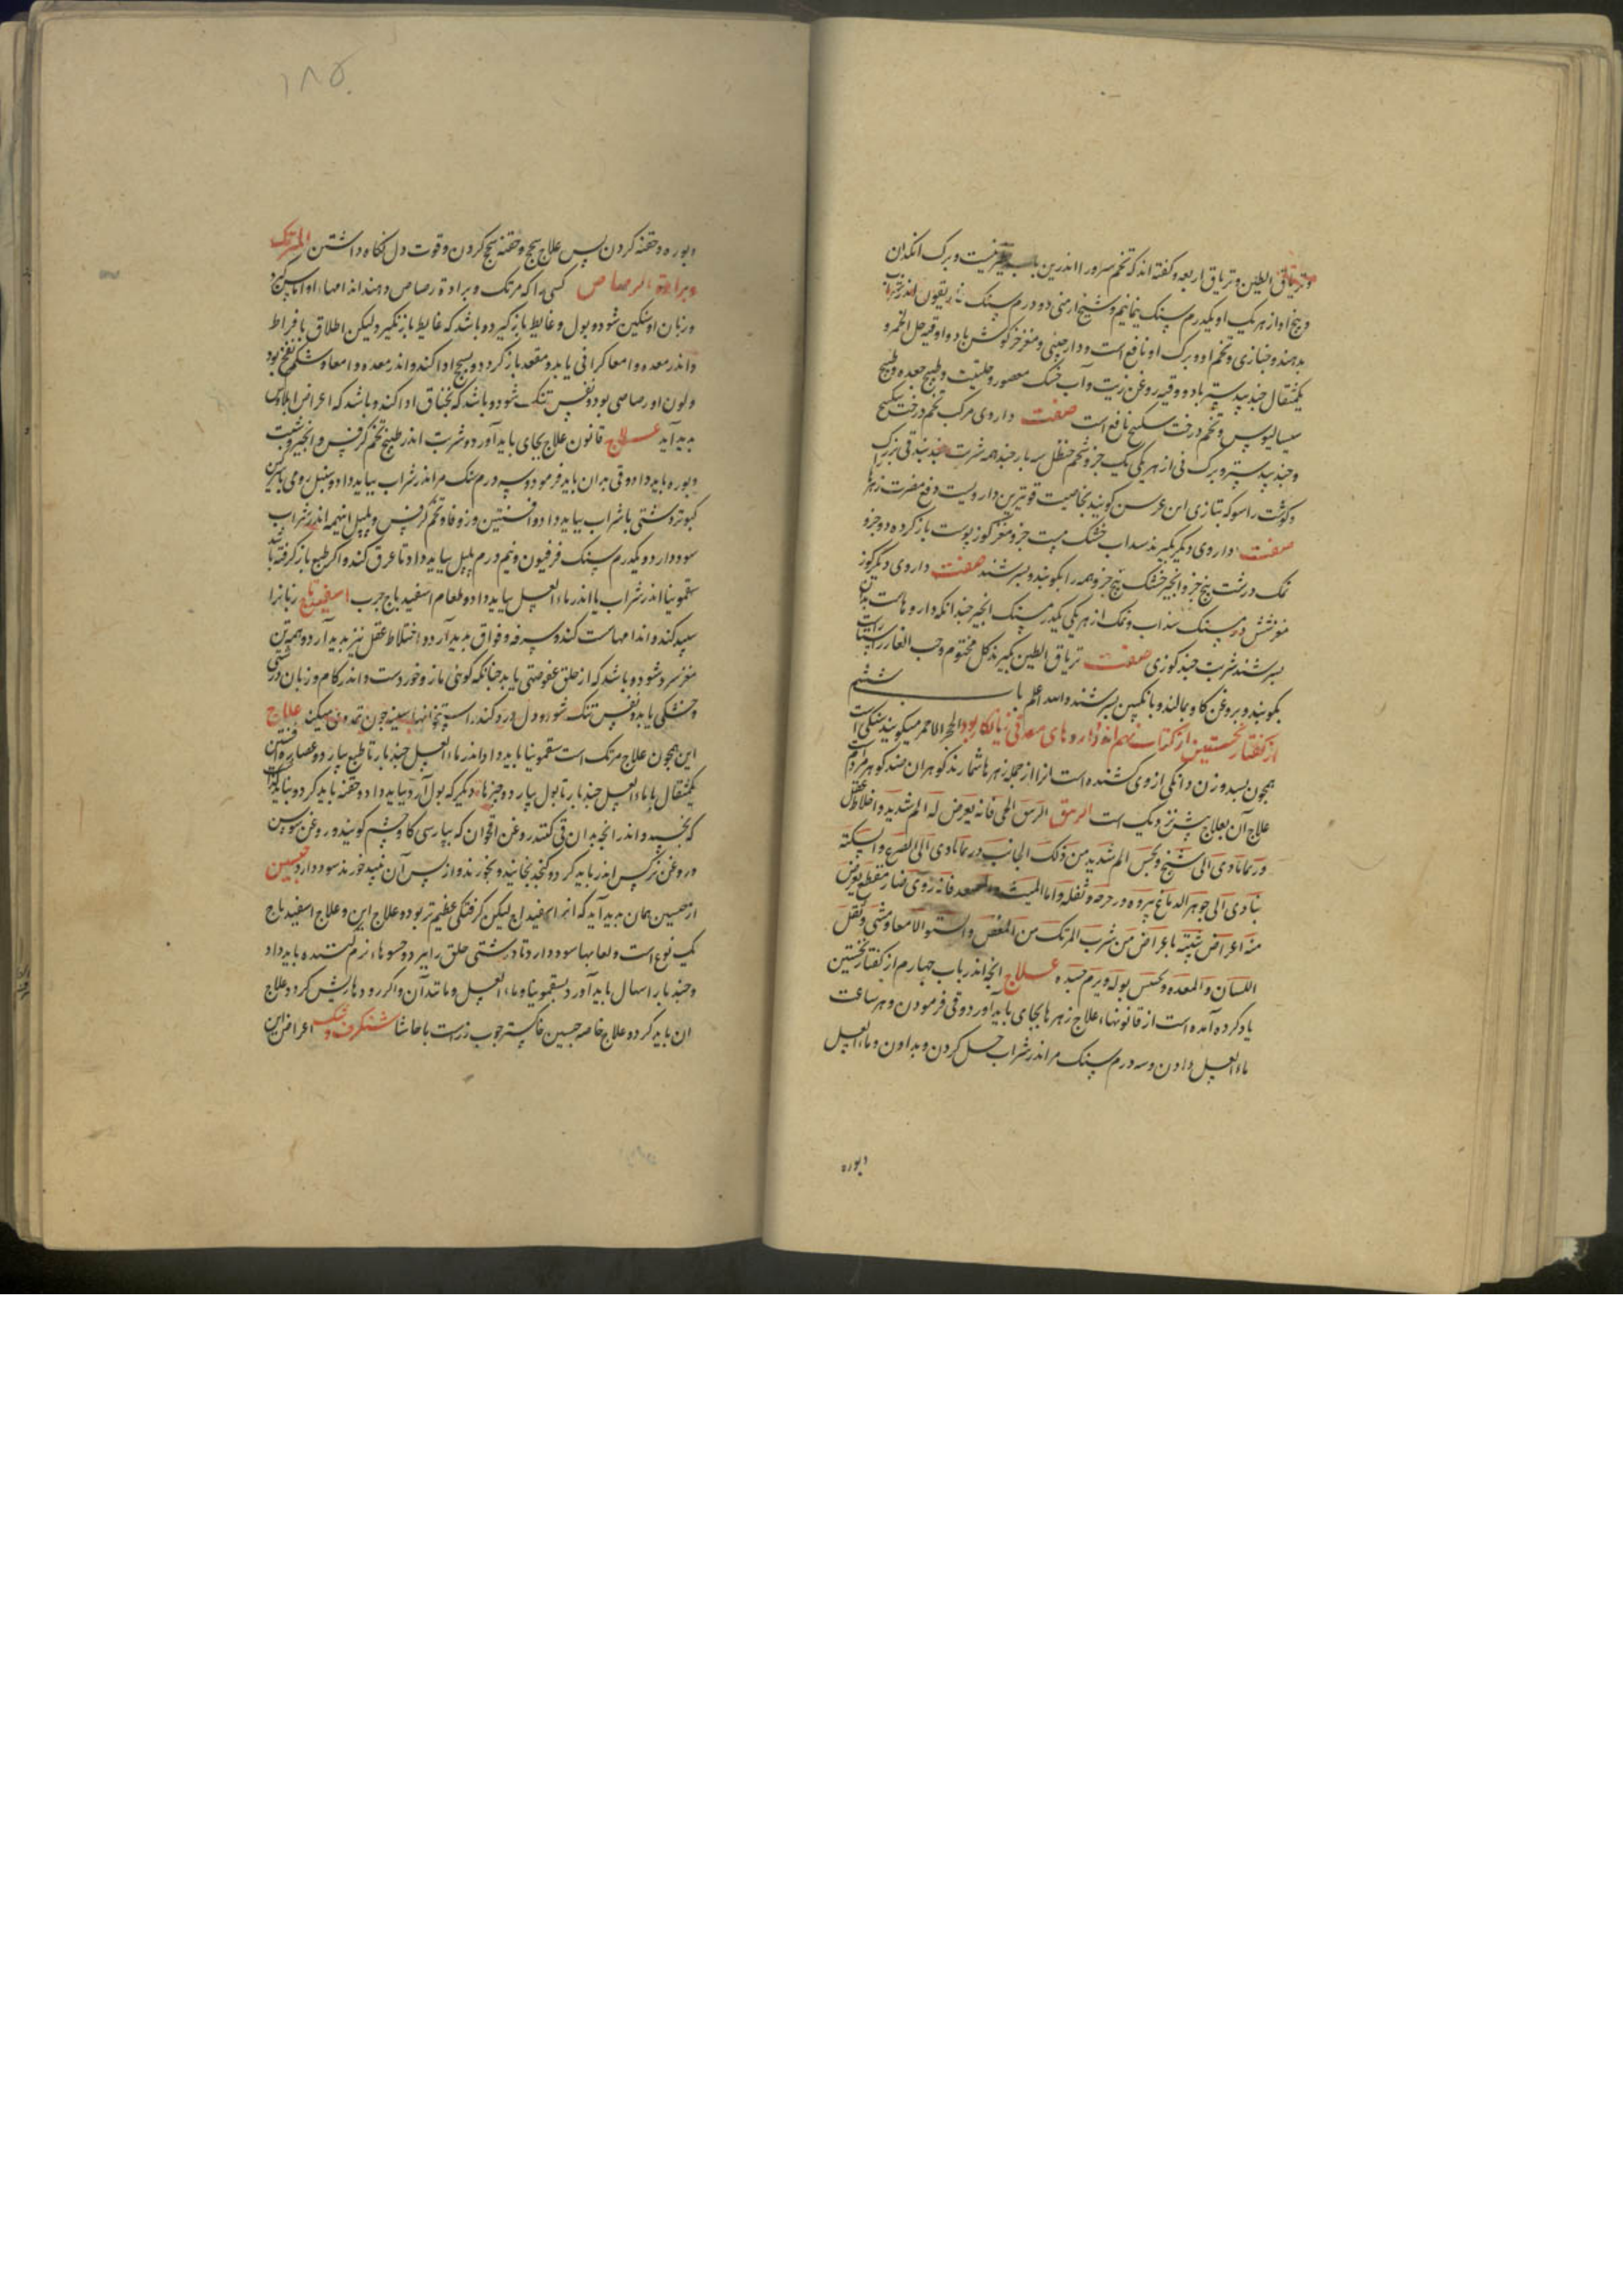 و تریاق الطین و تریاق اربعه و گفته اند که تخم سرو را اندرین باب خاصیت و برک انکدان
و بیخ او از هر یک او یکدرم سنک بنمانیم و شیخ ارمنی دو درم سنک غاریقون اندر شراب
بدهند و خبازی و تخم او و برک او نافع است و دارچینی و مغز خرکوش باد و اوقیه خل الخمر و
یکمثقال جندبیدستر باد و وقیه روغن زیت و آب خسک معصور و حلتیت و طبیخ جعده و طبیخ
سیسالیوس و تخم درخت سکبینج نافع است صفت داروی مرکب تخم درخت سکبینج
و جندبیدستر و برک نی از هر یکی یک جزو شحم حنظل سه بار چند همه شربت چند بندقی بزرک
و کوشت راسو که بتازی ابن عرس کویند بخاصیت قویترین دارویست دفع مضرت زهر
صفت داروی دیکر بکیرند سداب خشک بیست جزو مغز کوز پوست باز کرده دو جزو
نمک درشت پنج جزو انجیر خشک پنج جزو همه را بکوبند و بسرشند صفت داروی دیکر کوز
مغز شش درم سنک سداب و نمک از هر یکی یکدرم سنک انجیر چندانکه داروهاست بدان
بسرشند شربت چند کوزی صفت تریاق الطین بکیرند کل مختوم و حب الغار راستاراست
بکوبند و بروغن کاو بمالند و بانکبین بسرشند والله اعلم باب ششم
از کفتار نخستین از کتاب نهم اندر داروهای معدنی زیانکار بود الحجر الاحمر میکویند سنکی است
همچون بسد وزن دانکی از وی کشنده است انرا از جمله زهرها شمارند کوهران صند کوهر مردم
علاج آن بعلاج بیش نزدیک است الزیبق الزیبق الحی فانه یعرض له الم شدید و اختلاط عقل
و ربما تادی الی تشنج و یحس الم شدید من ذلک الجانب و ربما تادی الی الصرع و السکته
بتادی الی جوهر الدماغ ببروده و رجرجه و ثقله و اما المیت و المصعد فانه ردی ضار مقطع یعرض
منه اعراض شبیه باعراض من شرب المرتک من المغص و التواء الامعا و مشی و ثقل
اللسان و المعده و یحتبس بوله و یرم جسده علاج انچه اندر باب چهارم از کفتار نخستین
یاد کرده آمده است از قانونهاء علاج زهرها بجای باید آورد و قی فرمودن و هر ساعت
ماء العسل دادن و سه درم سنک مر اندر شراب حل کردن و بدادن و ماء العسل
و بوره
۱۸۵
و بوره و حقنه کردن پس علاج سحج و حقنه سحج کردن و قوت دل نکاه داشتن المرتک
و برادة الرصاص کسی را که مرتک و برادة رصاص دهند اندامهاء او آماس کیرد
و زبان او سنکین شود و بول و غایط باز کیرد و باشد که غایط باز نکیرد لیکن اطلاق بافراط
و اندر معده و امعا کرانی یابد و مقعد باز کردد و بسحج ادا کند و اندر معده و امعا و شکم نفخ بود
و لون او رصاصی بود و نفس تنک شود و باشد که بخناق ادا کند و باشد که اعراض ایلاوس
پدید آید علاج قانون علاج بجای باید آورد و شربت اندر طبیخ تخم کرفس و انجیر و شبت
و بوره باید داد و قی بدان باید فرمود و سه درم سنک مر اندر شراب بباید داد و سنبل رومی با سرکین
کبوتر دشتی با شراب بباید داد و افسنتین و زوفا و تخم کرفس و پلپل اینهمه اندر شراب
سود دارد و یکدرم سنک فرفیون و نیم درم پلپل بباید داد تا عرق کند و اکر طبع باز کرفته باشد
سقمونیا اندر شراب یا اندر ماء العسل بباید داد و طعام اسفیدباج چرب اسفیداج زبانرا
سپید کند و اندامها سست کند و سرفه و فواق پدید آرد و اختلاط عقل نیز پدید آرد و همه تن
مغز سرد شود و باشد که از حلق عفوصتی یابد چنانکه کوئی مازو خوردست و اندر کام و زبان درشتی
و خشکی یابد و نفس تنک شود و دل درد کند علاج
این همچون علاج مرتک است سقمونیا باید داد اندر ماء العسل چند بار تا طبع بیارد و عصاره افسنتین
یکمثقال با ماء العسل چند بار تا بول بیارد و چیزهاء دیکر که بول آرد بباید داد و حقنه باید کرد و نباید کذاشت
که بخسبد و اندر انچه بدان قی کنند روغن اقحوان که بپارسی کاوچشم کویند و روغن سوسن
و روغن نرکس اندر باید کرد و کنجد بخایند و بخورند و از پس آن نبید خورند سود دارد جبسین
از جبسین همان پدید آید که از اسفیداج لیکن کرفتکی عظیم تر بود و علاج این و علاج اسفیداج
یک نوع است و لعابها سود دارد تا درشتی حلق را ببرد و حسوهاء نرم کننده باید داد
و چند بار اسهال باید آورد بسقمونیا و ماء العسل و مانند آن و اکر رودها ریش کردد علاج
آن باید کرد و علاج خاصه جبسین خاکستر چوب رزست با حاشا شنکرف و شک اعراض این